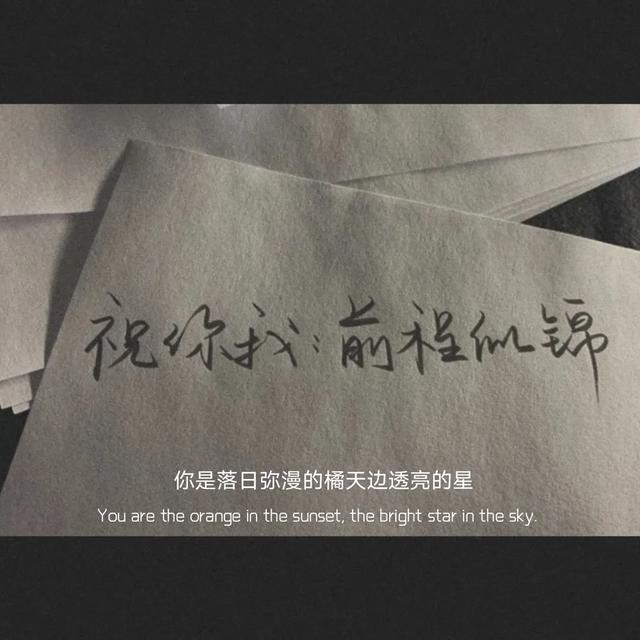 祝你我:前程似锦
你是落日弥漫的橘天边透亮的星
You are the orange in the sunset, the bright star in the sky.